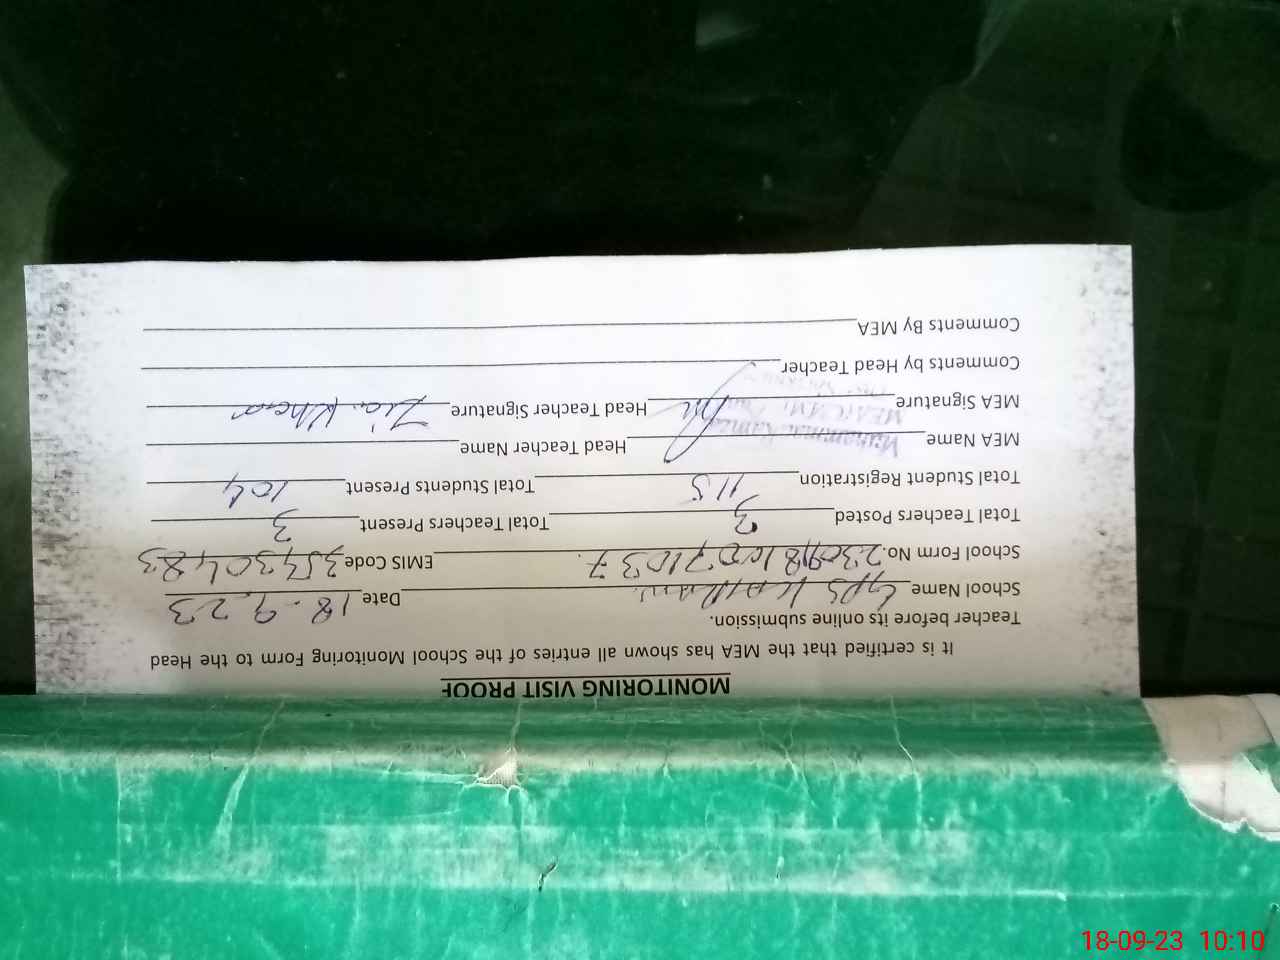 MONITORING VISIT PROOF
It is certified that the MEA has shown all entries of the School Monitoring Form to the Head
Teacher before its online submission.
School Name GPS Date 18-9-23
School Form No. 23091810071037 EMIS Code 35430483
Total Teachers Posted 3 Total Teachers Present 3
Total Student Registration 115 Total Students Present 104
MEA Name Muhammad Head Teacher Name
MEA Signature Head Teacher Signature
Comments by Head Teacher
Comments By MEA
18-09-23 10:10